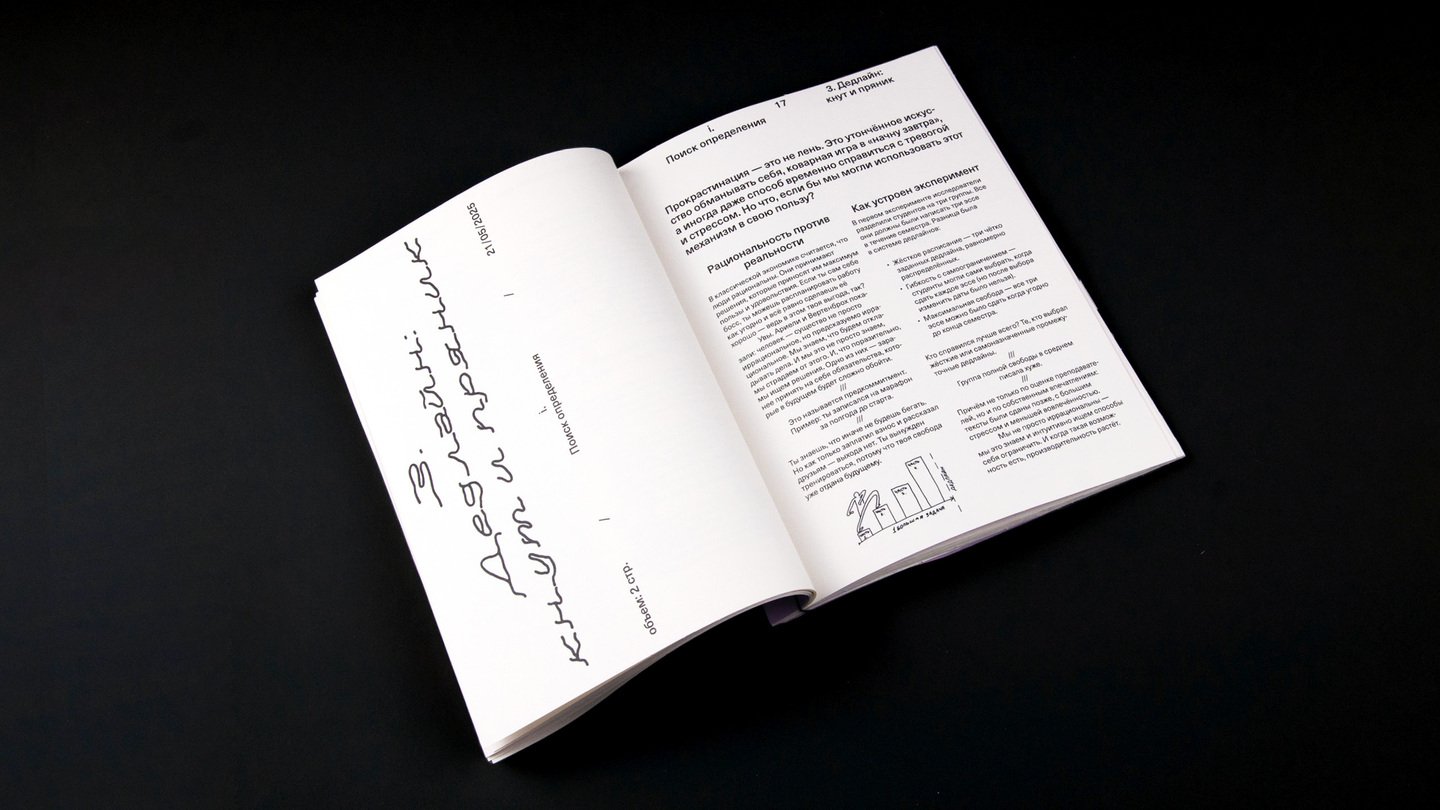 3.
Дедлайн:
кнут и пряник
21/05/2025
i.
Поиск определения
объем: 2 стр.
i.
Поиск определения
17
3. Дедлайн:
кнут и пряник
Прокрастинация — это не лень. Это утончённое искус-
ство обманывать себя, коварная игра в «начну завтра»,
а иногда даже способ временно справиться с тревогой
и стрессом. Но что, если бы мы могли использовать этот
механизм в свою пользу?
Рациональность против
реальности
В классической экономике считается, что
люди рациональны. Они принимают
решения, которые приносят им максимум
пользы и удовольствия. Если ты сам себе
босс, ты можешь распланировать работу
как угодно и всё равно сделаешь её
хорошо — ведь в этом твоя выгода, так?
Увы. Ариели и Вертенброх пока-
зали: человек — существо не просто
иррациональное, но предсказуемо ирра-
циональное. Мы знаем, что будем откла-
дывать дела. И мы это не просто знаем,
мы страдаем от этого. И, что поразительно,
мы ищем решения. Одно из них — зара-
нее принять на себя обязательства, кото-
рые в будущем будет сложно обойти.
///
Это называется предкоммитмент.
Пример: ты записался на марафон
за полгода до старта.
///
Ты знаешь, что иначе не будешь бегать.
Но как только заплатил взнос и рассказал
друзьям — выхода нет. Ты вынужден
тренироваться, потому что твоя свобода
уже отдана будущему.
большая задача
часть
часть
дедлайн
Как устроен эксперимент
В первом эксперименте исследователи
разделили студентов на три группы. Все
они должны были написать три эссе
в течение семестра. Разница была
в системе дедлайнов:
• Жёсткое расписание — три чётко
заданных дедлайна, равномерно
распределённых.
• Гибкость с самоограничением —
студенты могли сами выбрать, когда
сдать каждое эссе (но после выбора
изменить даты было нельзя).
• Максимальная свобода — все три
эссе можно было сдать когда угодно
до конца семестра.
Кто справился лучше всего? Те, кто выбрал
жёсткие или самоназначенные промежу-
точные дедлайны.
///
Группа полной свободы в среднем
писала хуже.
///
Причём не только по оценке преподавате-
лей, но и по собственным впечатлениям:
тексты были сданы позже, с большим
стрессом и меньшей вовлечённостью.
Мы не просто иррациональны —
мы это знаем и интуитивно ищем способы
себя ограничить. И когда такая возмож-
ность есть, производительность растёт.